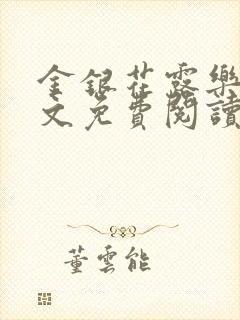 金銀花露樂
文免費閱讀
董雲能